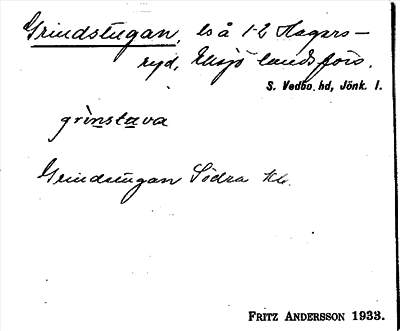 Grindstugan, ls å 1-2 Hagars-
ryd, Eksjö landsförs.
S. Vedbo hd, Jönk. l.
grinstava
Grindstugan Södra Kb.
FRITZ ANDERSSON 1933.